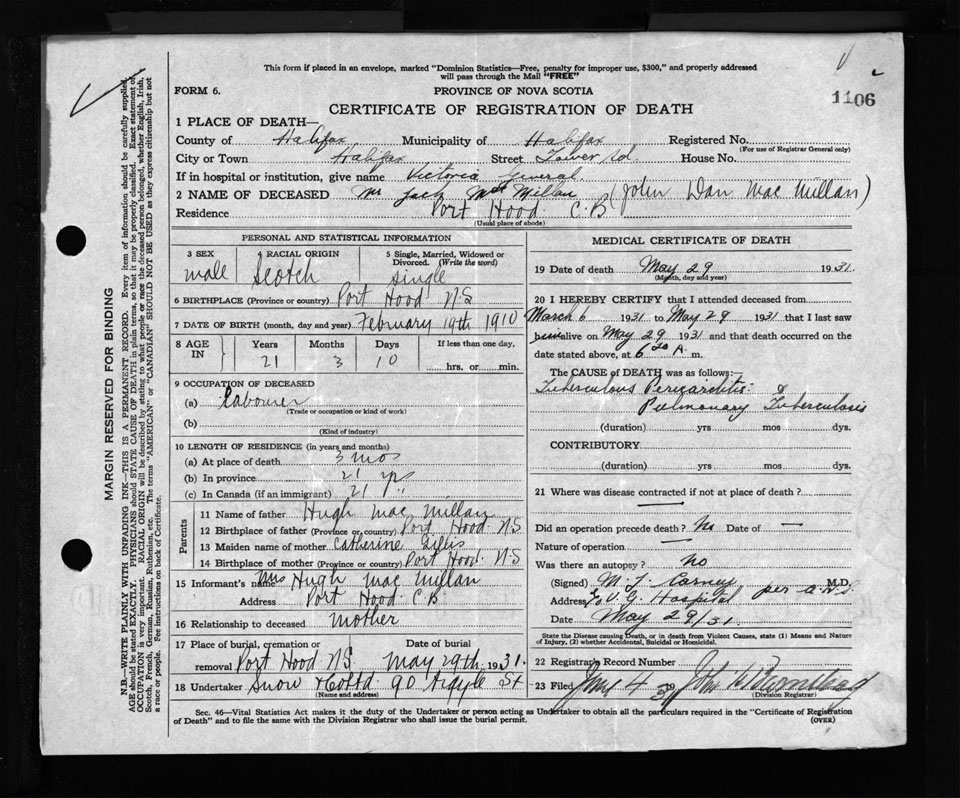 This form if placed in an envelope, marked "Dominion Statistics—Free, penalty for improper use, $300," and properly addressed
will pass through the Mail "FREE"
FORM 6.
PROVINCE OF NOVA SCOTIA
1106
CERTIFICATE OF REGISTRATION OF DEATH
1 PLACE OF DEATH—
County of Halifax Municipality of Halifax Registered No.
(For use of Registrar General only)
City or Town Halifax Street Tower Rd. House No.
If in hospital or institution, give name Victoria General
2 NAME OF DECEASED Mr Jack McMillan (John Dan Mac Millan)
Residence Port Hood C.B
(Usual place of abode)
PERSONAL AND STATISTICAL INFORMATION
3 SEX male
4 RACIAL ORIGIN Scotch
5 Single, Married, Widowed or Divorced. (Write the word) single
6 BIRTHPLACE (Province or country) Port Hood N.S
7 DATE OF BIRTH (month, day and year) February 19th 1910
8 AGE IN Years Months Days If less than one day,
21 3 10 hrs. or min.
9 OCCUPATION OF DECEASED
(a) Labourer
(Trade or occupation or kind of work)
(b)
(Kind of industry)
10 LENGTH OF RESIDENCE (in years and months)
(a) At place of death 3 mos
(b) In province 21 yr
(c) In Canada (if an immigrant) 21 "
Parents
11 Name of father Hugh Mac Millan
12 Birthplace of father (Province or country) Port Hood NS
13 Maiden name of mother Catherine Gillis
14 Birthplace of mother (Province or country) Port Hood N.S
15 Informant's name Mrs Hugh Mac Millan
Address Port Hood C.B
16 Relationship to deceased mother
17 Place of burial, cremation or removal Port Hood NS Date of burial May 29th 1931.
18 Undertaker Snow & Co Ltd 90 Argyle St
(Name and address)
MEDICAL CERTIFICATE OF DEATH
19 Date of death May 29 1931.
(Month, day and year)
20 I HEREBY CERTIFY that I attended deceased from
March 6 1931 to May 29 1931 that I last saw
him alive on May 29 1931 and that death occurred on
date stated above, at 6 20 A. m.
The CAUSE OF DEATH was as follows:—
Tuberculous Pericarditis &
Pulmonary Tuberculosis
(duration) yrs mos dys.
CONTRIBUTORY
(duration) yrs. mos. dys.
21 Where was disease contracted if not at place of death?
—
Did an operation precede death? No Date of —
Nature of operation —
Was there an autopsy? No
(Signed) M. J. Carney M.D.
Address V. G. Hospital per
Date May 29/31.
State the Disease causing Death, or in death from Violent Causes, state (1) Means and Nature
of Injury, (2) whether Accidental, Suicidal or Homicidal.
22 Registrar's Record Number
23 Filed June 4 John W
(Division Registrar)
Sec. 46—Vital Statistics Act makes it the duty of the Undertaker or person acting as Undertaker to obtain all the particulars required in the "Certificate of Registration
of Death" and to file the same with the Division Registrar who shall issue the burial permit.
(OVER)
MARGIN RESERVED FOR BINDING
N.B—WRITE PLAINLY WITH UNFADING INK—THIS IS A PERMANENT RECORD. Every item of information should be carefully supplied.
AGE should be stated EXACTLY. PHYSICIANS should STATE CAUSE OF DEATH in plain terms, so that it may be properly classified. Exact statement of
OCCUPATION is very important. RACIAL ORIGIN will be described by stating to what people or race the deceased person belonged, whether English, Irish,
Scotch, French, German, Russian, Ruthenian, etc. The terms "AMERICAN" or "CANADIAN" SHOULD NOT BE USED as they express citizenship but not
a race or people. See instructions on back of Certificate.